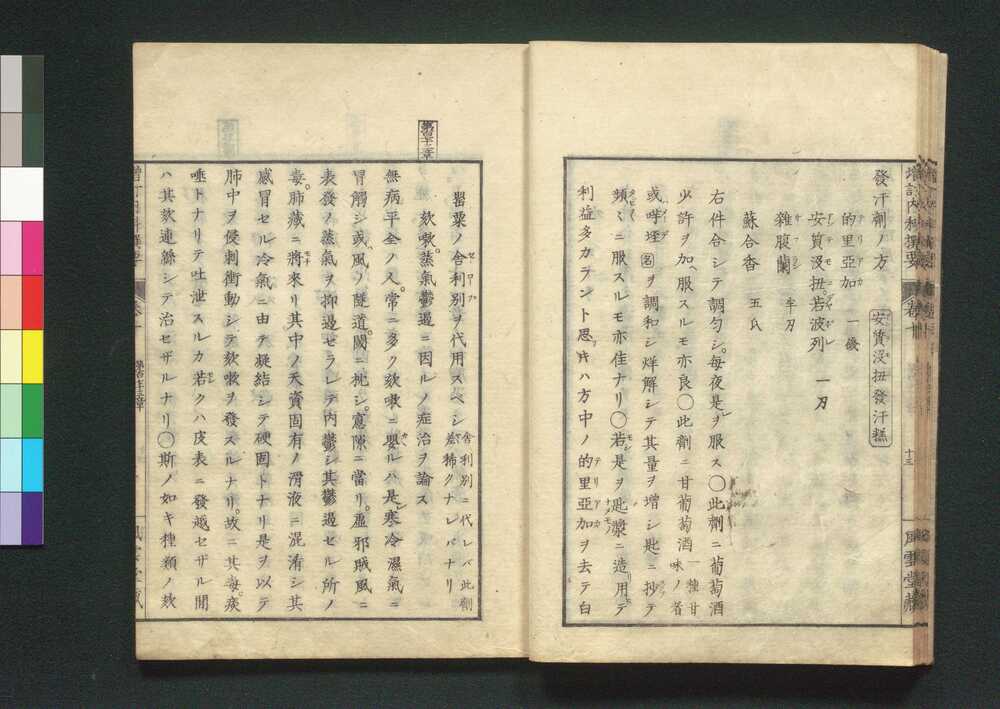 發汗劑ノ方 安質没扭發汗糕
的里亞加 一錢
安質没扭若波列 一刃
雜腹蘭 半刃
蘇合香 五氏
右件合シテ調勻シ。毎夜是ヲ服ス〇此劑ニ葡萄酒
少許ヲ加ヘ服スルモ亦良〇此劑ニ甘葡萄酒一種甘味ノ者
或ハ 名ヲ調和シ烊解シテ其量ヲ增シ匙ニ抄テ
頻々ニ服スルモ亦佳ナリ〇若是ヲ匙漿ニ造リ用テ
利益多カラント思ハ方中ノ的里亞加ヲ去テ白
增訂内科撰要 卷十 十三 風雲堂藏
罌粟ノ舍利別ヲ代用スベシ舍利別ニ代レバ此劑甚稀クナレバナリ
第四十三章
欬嗽。蒸氣鬱遏ニ因ルノ症治ヲ論ス
無病平全ノ人。常ニ多ク欬嗽ニ嬰ルハ是寒冷濕氣ニ
冒觸シ或ハ風ノ隧道。閾ニ枇シ。窓隙ニ當リ。虛邪賊風ニ
表發ノ蒸氣ヲ抑遏セラレテ内鬱シ其鬱遏セル所ノ
毒。肺藏ニ將來リ其中ノ天資固有ノ滑液ニ混淆シ其
感冒セル冷氣ニ由テ凝結シテ硬固トナリ是ヲ以テ
肺中ヲ侵刺衝動シテ欬嗽ヲ發スルナリ。故ニ其毒。痰
唾トナリテ吐泄スルカ若クハ皮表ニ發越セザル間
ハ其欬連緜シテ治セザルナリ〇斯ノ如キ種類ノ欬